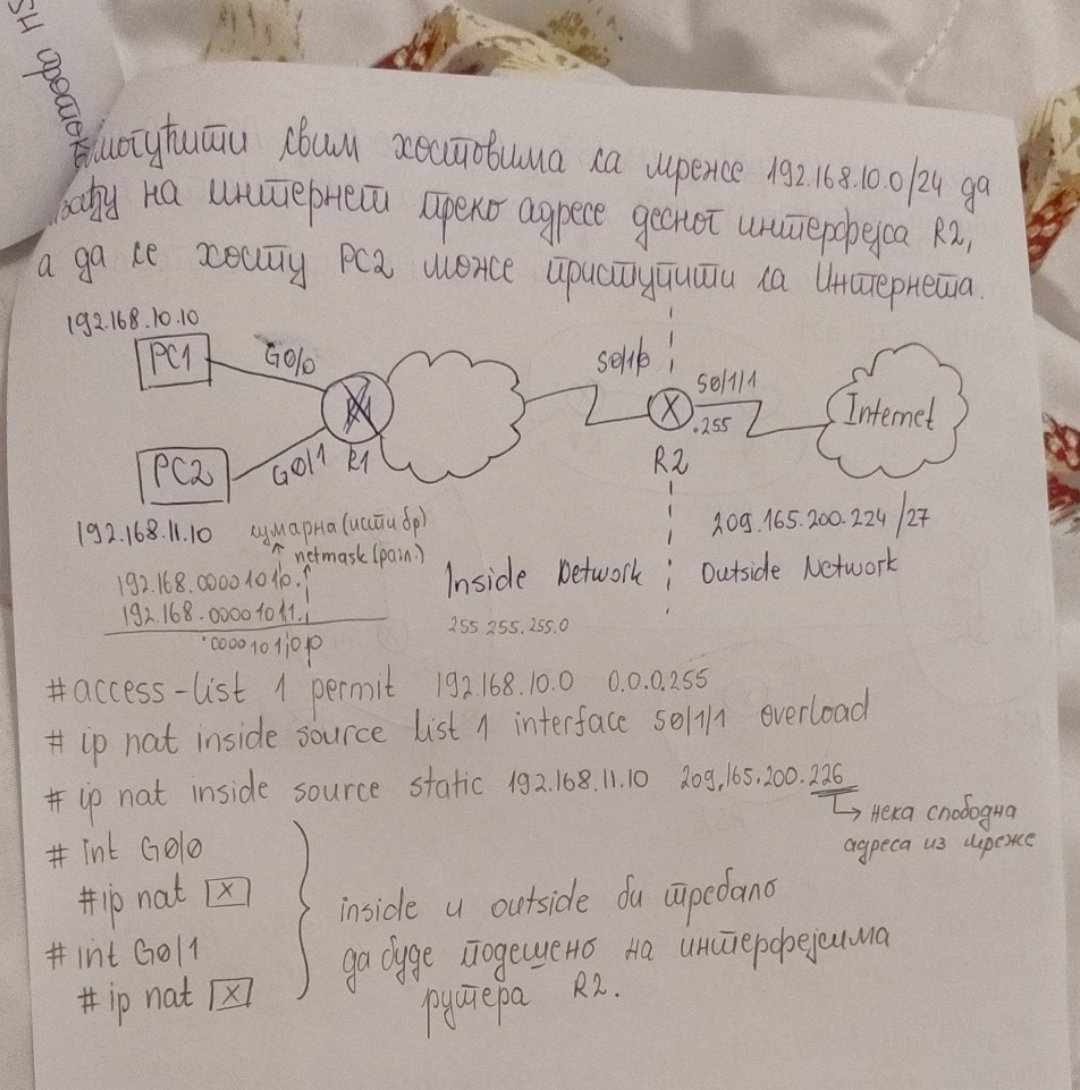 SH проток
омогућити свим хостовима са мреже 192.168.10.0/24 да
изађу на интернет преко адресе десног интерфејса R2,
а да се хосту PC2 може приступити са Интернета.
192.168.10.10
PC1
G0/0
S0/1/0
S0/1/1
.255
Internet
PC2
G0/1
R1
X
R2
192.168.11.10
сумарна (исти бр)
netmask (разл.)
209.165.200.224/27
192.168.00001010.
192.168.00001011.
.0000101|0|0
Inside Network
Outside Network
255.255.255.0
#access-list 1 permit 192.168.10.0 0.0.0.255
# ip nat inside source list 1 interface S0/1/1 overload
# ip nat inside source static 192.168.11.10 209.165.200.226
→ нека слободна
адреса из мреже
# int G0/0
#ip nat X
# int G0/1
# ip nat X
inside и outside би требало
да буде подешено на интерфејсима
рутера R2.